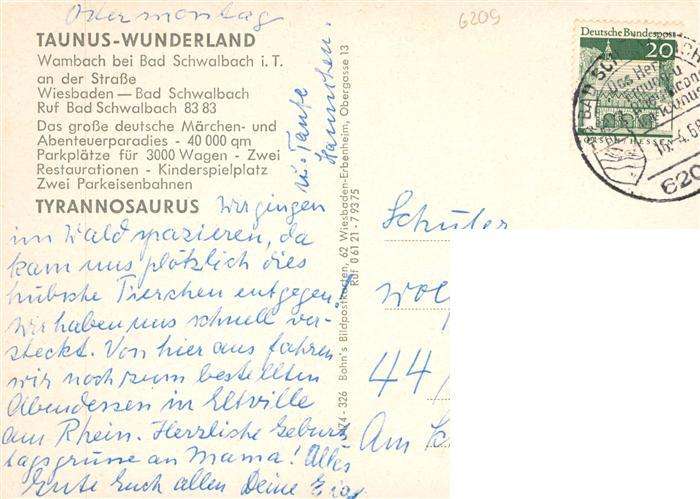 Ostermontag
6209
TAUNUS-WUNDERLAND
Wambach bei Bad Schwalbach i. T.
an der Straße
Wiesbaden — Bad Schwalbach
Ruf Bad Schwalbach 83 83
Das große deutsche Märchen- und
Abenteuerparadies - 40 000 qm
Parkplätze für 3000 Wagen - Zwei
Restaurationen - Kinderspielplatz
Zwei Parkeisenbahnen
TYRANNOSAURUS Wir gingen
im Wald spazieren, da
kam uns plötzlich dies
hübsche Tierchen entgegen
wir haben uns schnell ver-
steckt. Von hier aus fahren
wir noch zum bestellten
Abendessen in Eltville
am Rhein. Herzliche Geburts
tagsgrüsse an Mama! Alles
Gute Euch allen Deine
u. Tante
Hannchen.
474 - 326 Bohn's Bildpostkarten, 62 Wiesbaden-Erbenheim, Obergasse 13
Ruf 0 61 21 - 7 93 75
Deutsche Bundespost
20
BAD SCH
620
Schüler
Wol
44
Am